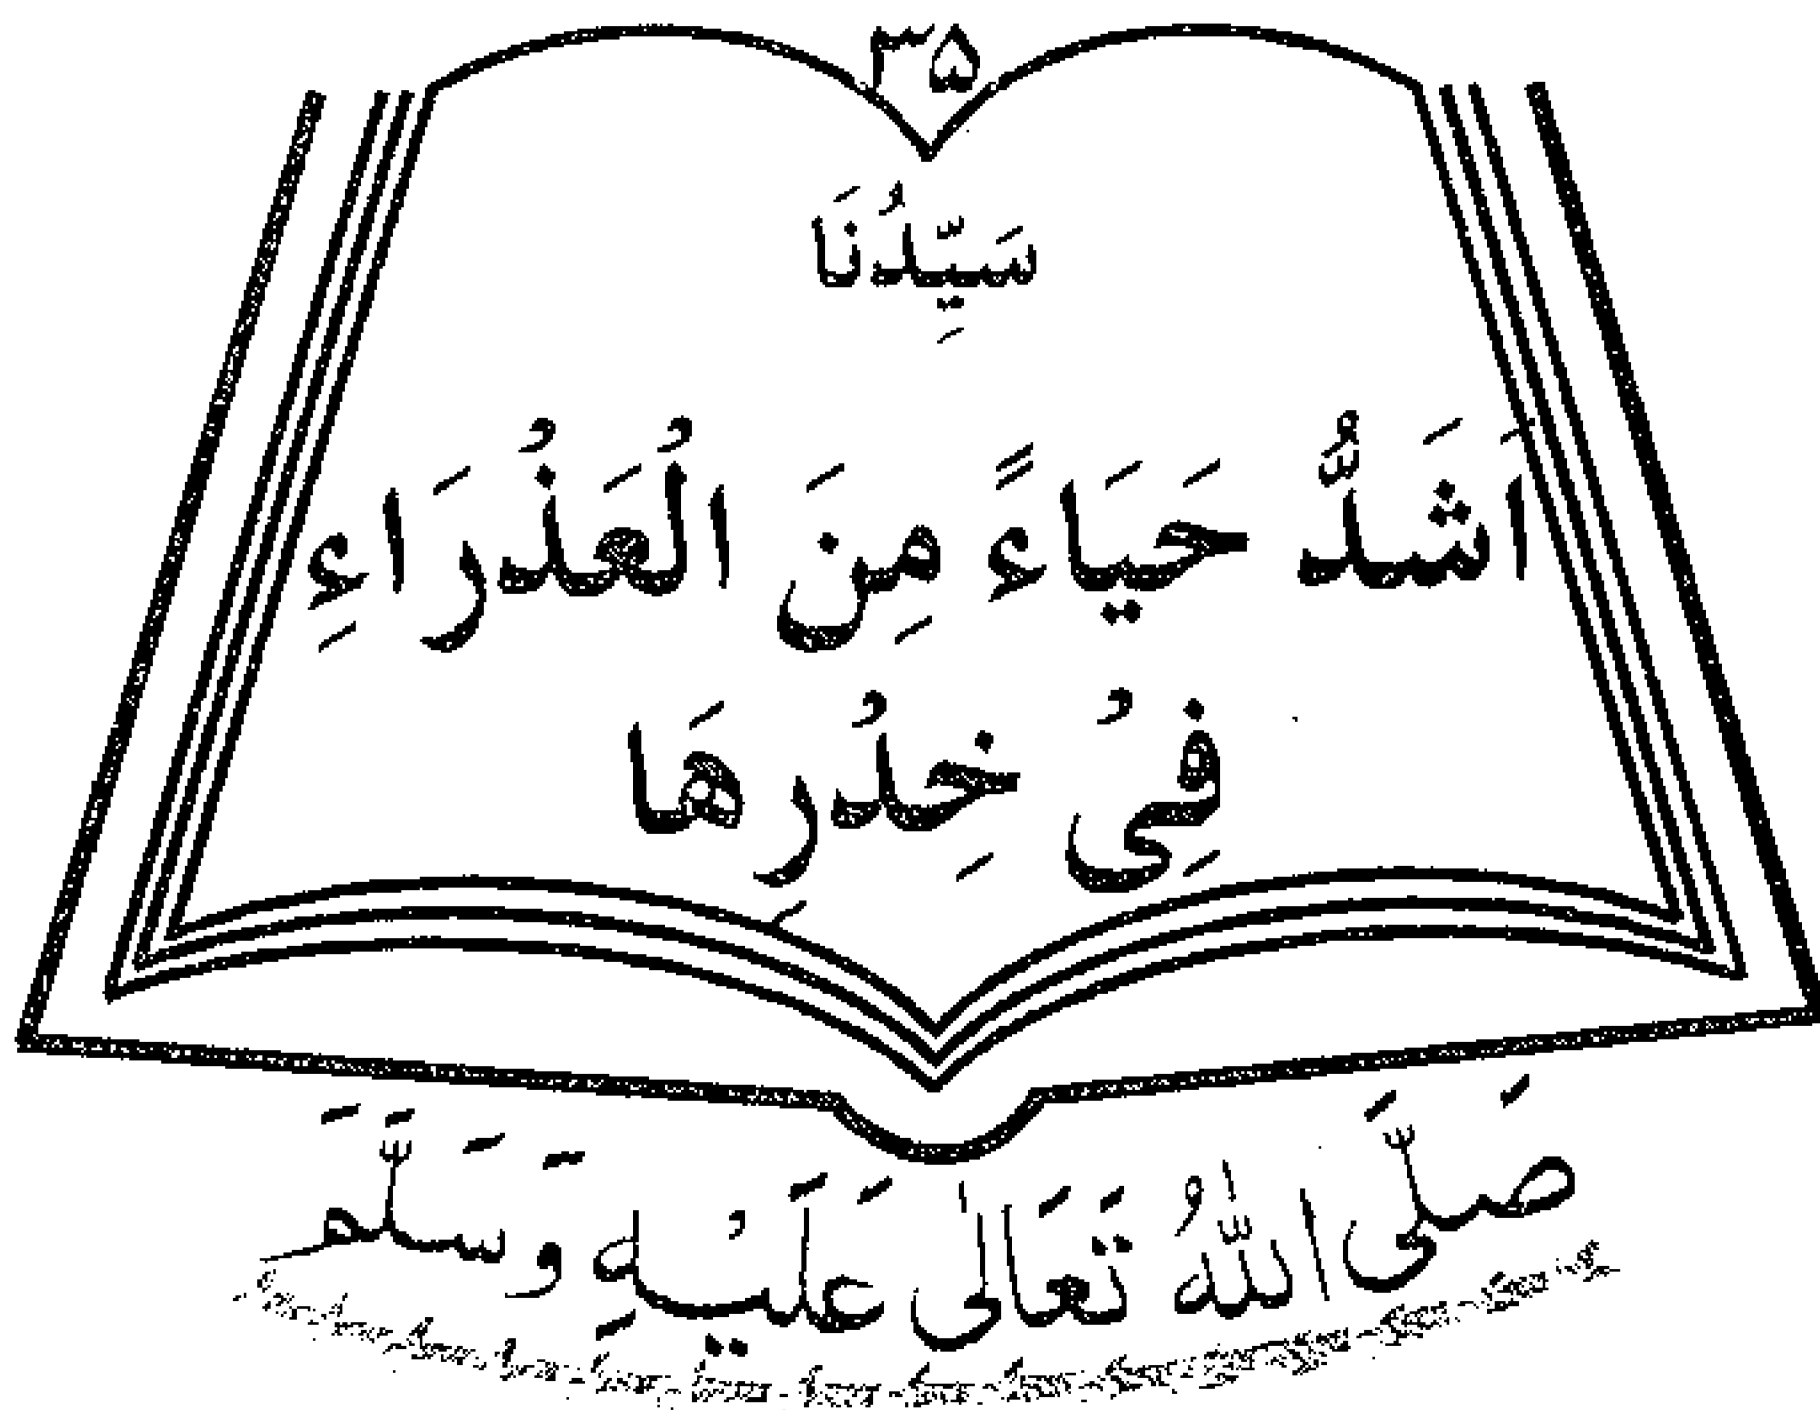 ۳۵
سَیِّدُنَا
اَشَدُّ حَیَاءً مِنَ الْعَذْرَاءِ
فِیْ خِدْرِهَا
صَلَّی اللّٰهُ تَعَالٰی عَلَیْهِ وَسَلَّمَ